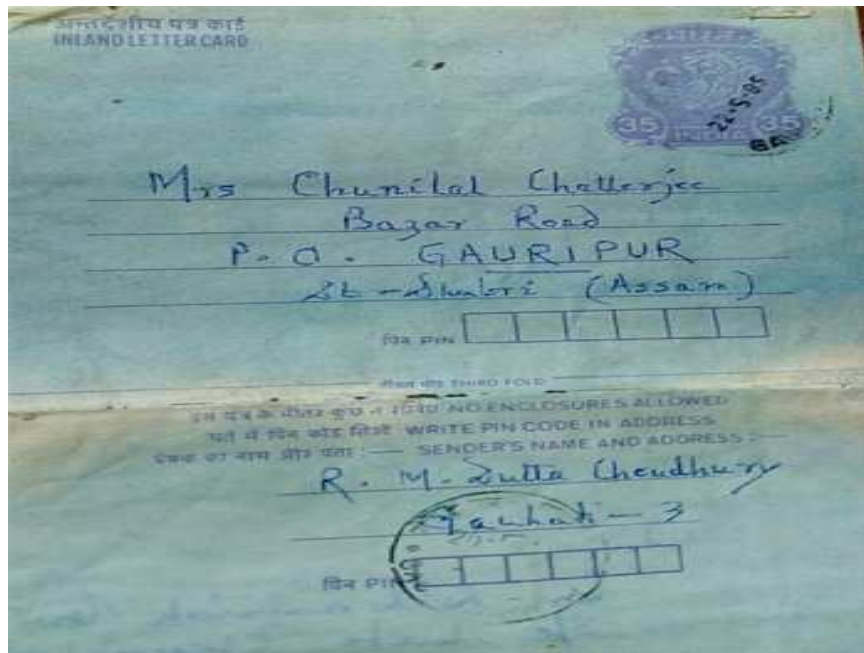 अन्तर्देशीय पत्र कार्ड
INLAND LETTER CARD
35 INDIA 35
22·5·85
GA
Mrs Chunilal Chatterjee
Bazar Road
P.O. GAURIPUR
Dt - Dhubri (Assam)
पिन PIN
तीसरा मोड़ THIRD FOLD
इस पत्र के भीतर कुछ न रखिये NO ENCLOSURES ALLOWED
पते में पिन कोड लिखें WRITE PIN CODE IN ADDRESS
प्रेषक का नाम और पता :— SENDER'S NAME AND ADDRESS :—
R. M. Dutta Choudhury
Gauhati - 3
पिन PIN